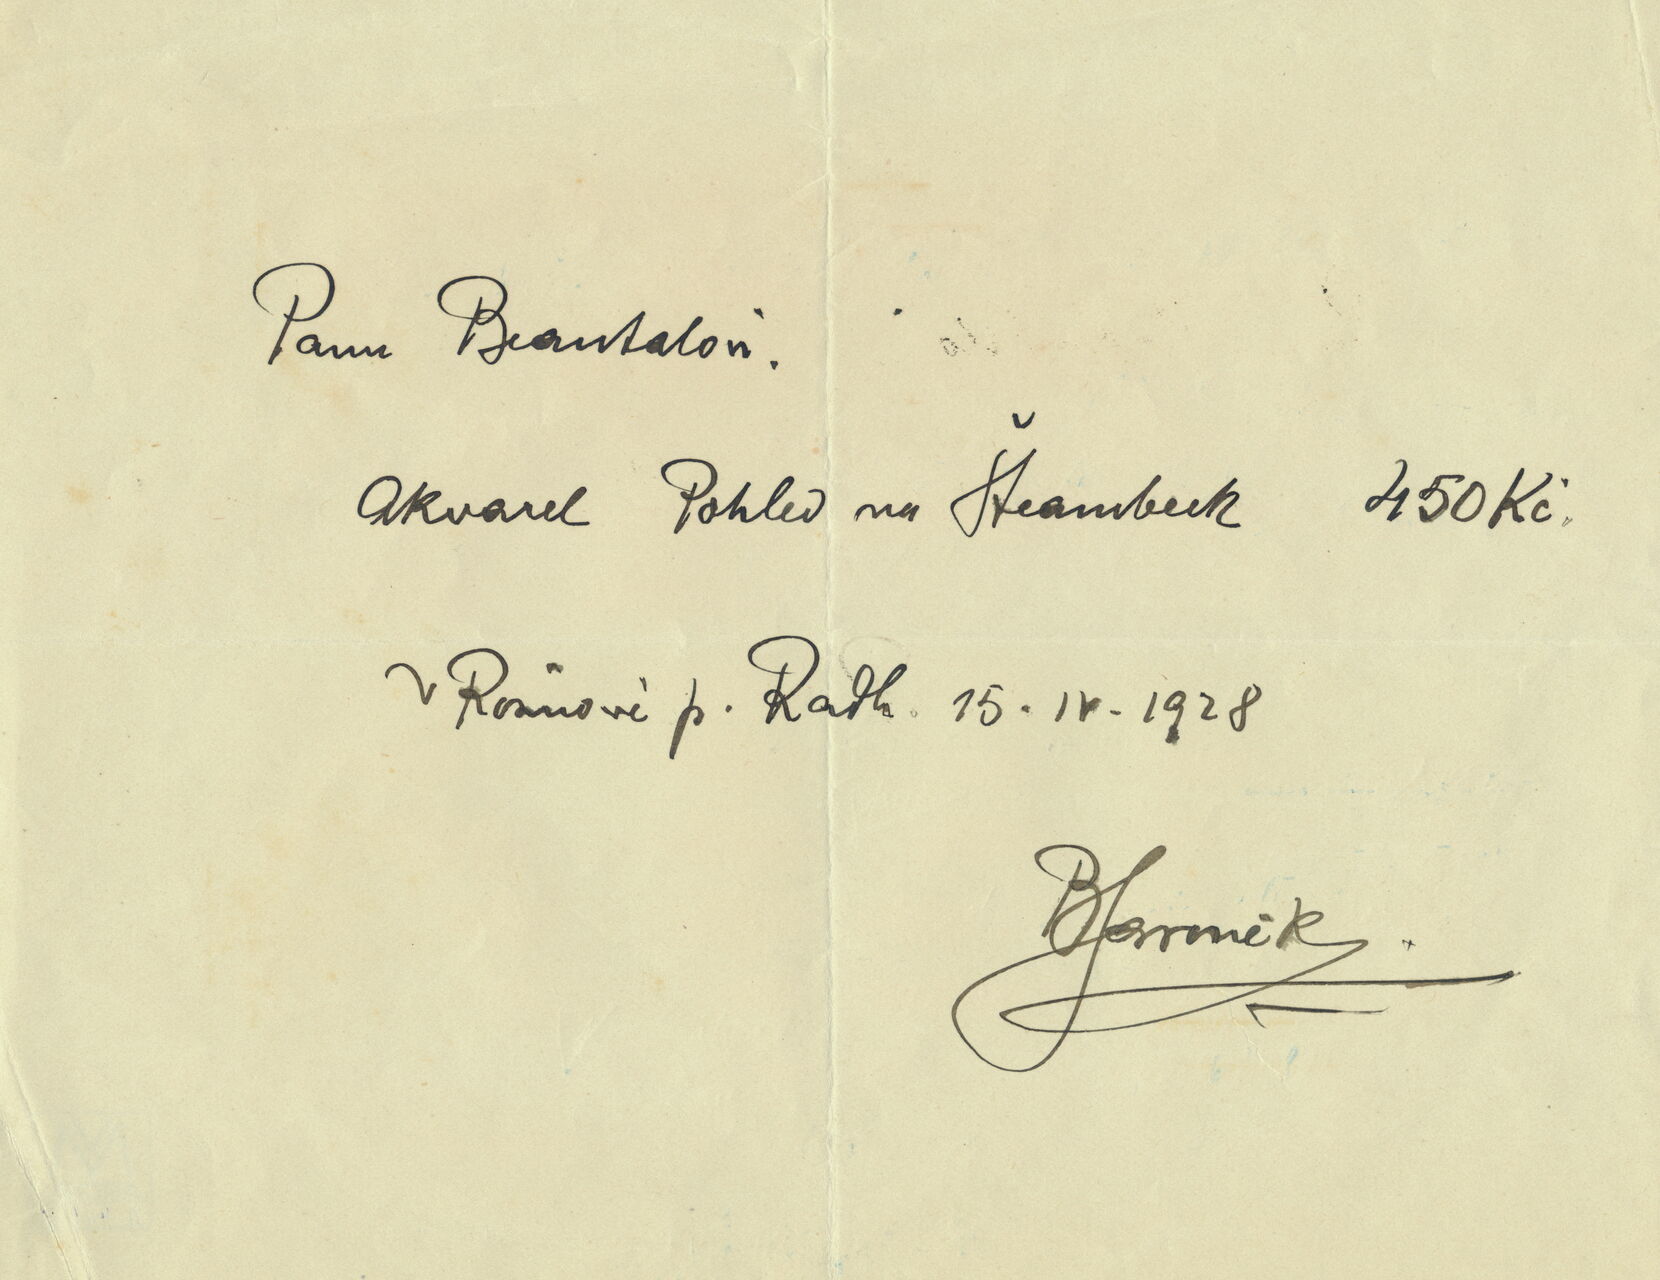 Panu Beautalovi.
Akvarel Pohled na Štramberk 450 Kč.
V Rožnově p. Radh. 15. IV. 1928
B Jaroněk.